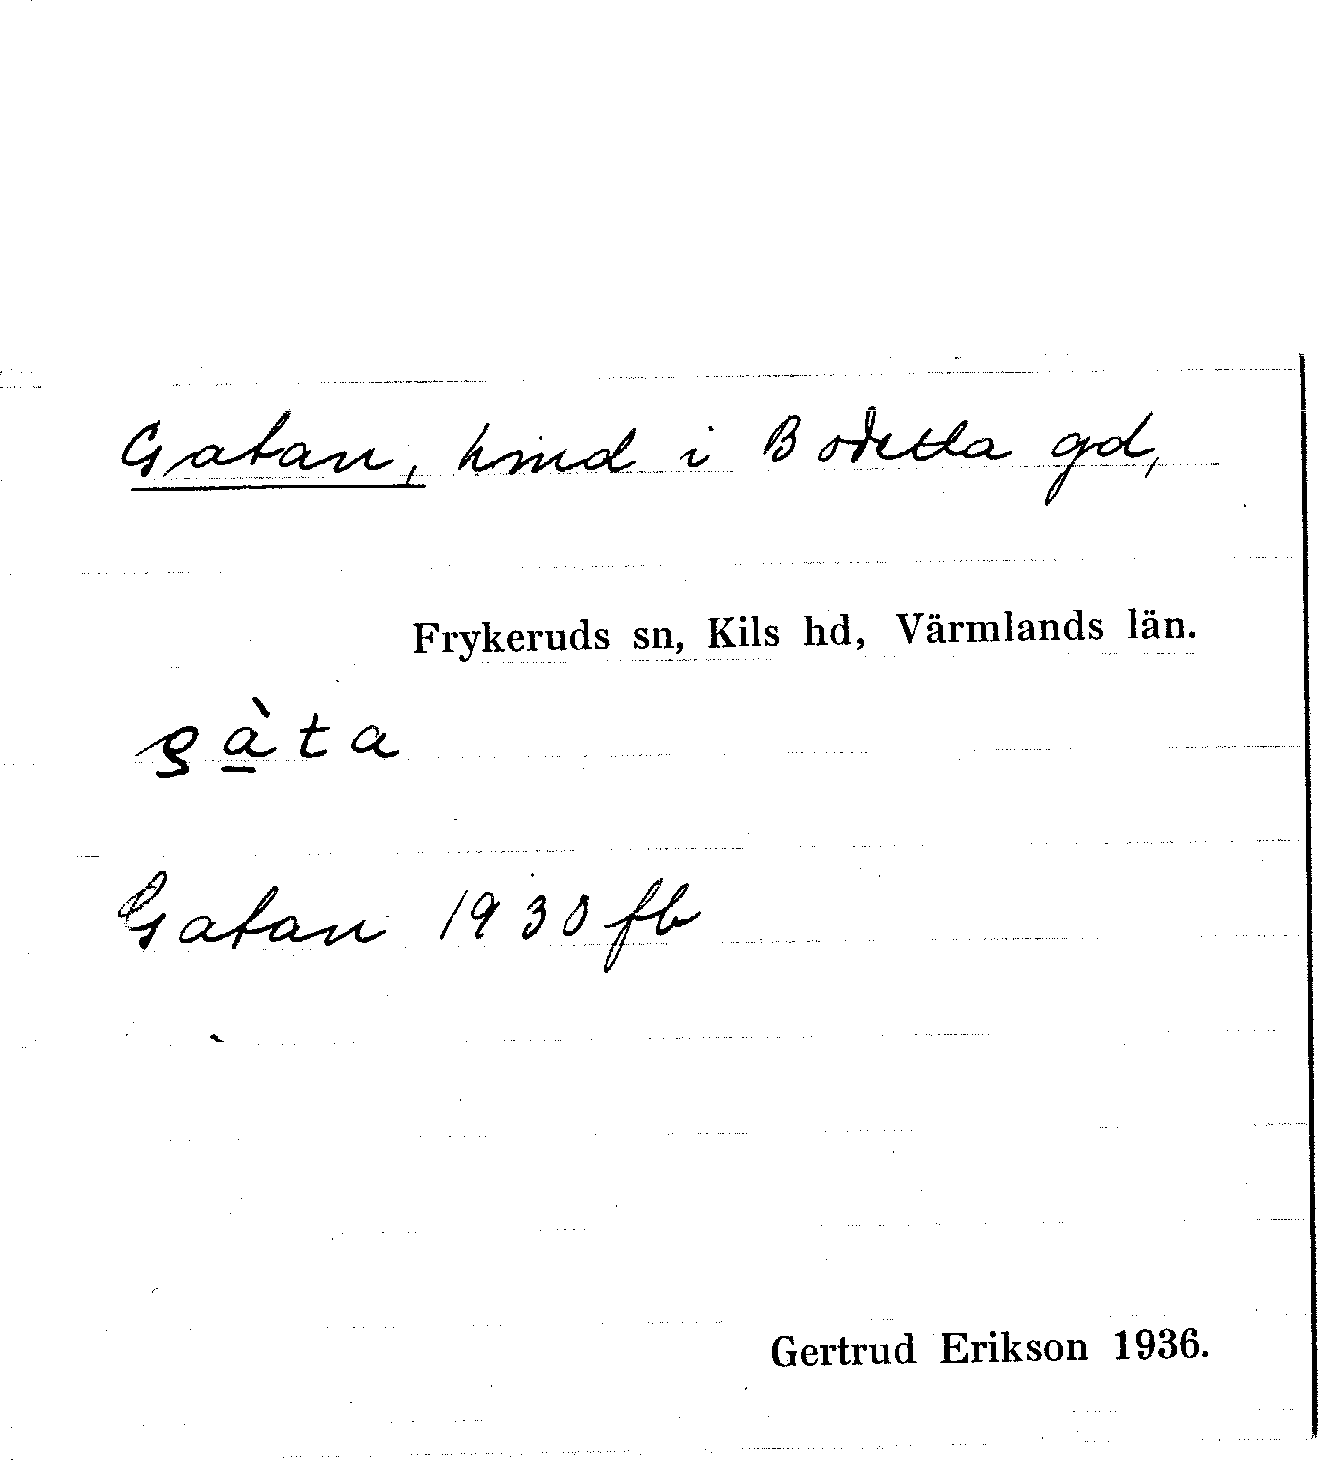 Gatan, hmd i Bodetta gd,
Frykeruds sn, Kils hd, Värmlands län.
gà̱ta
Gatan 1930 fb
Gertrud Erikson 1936.